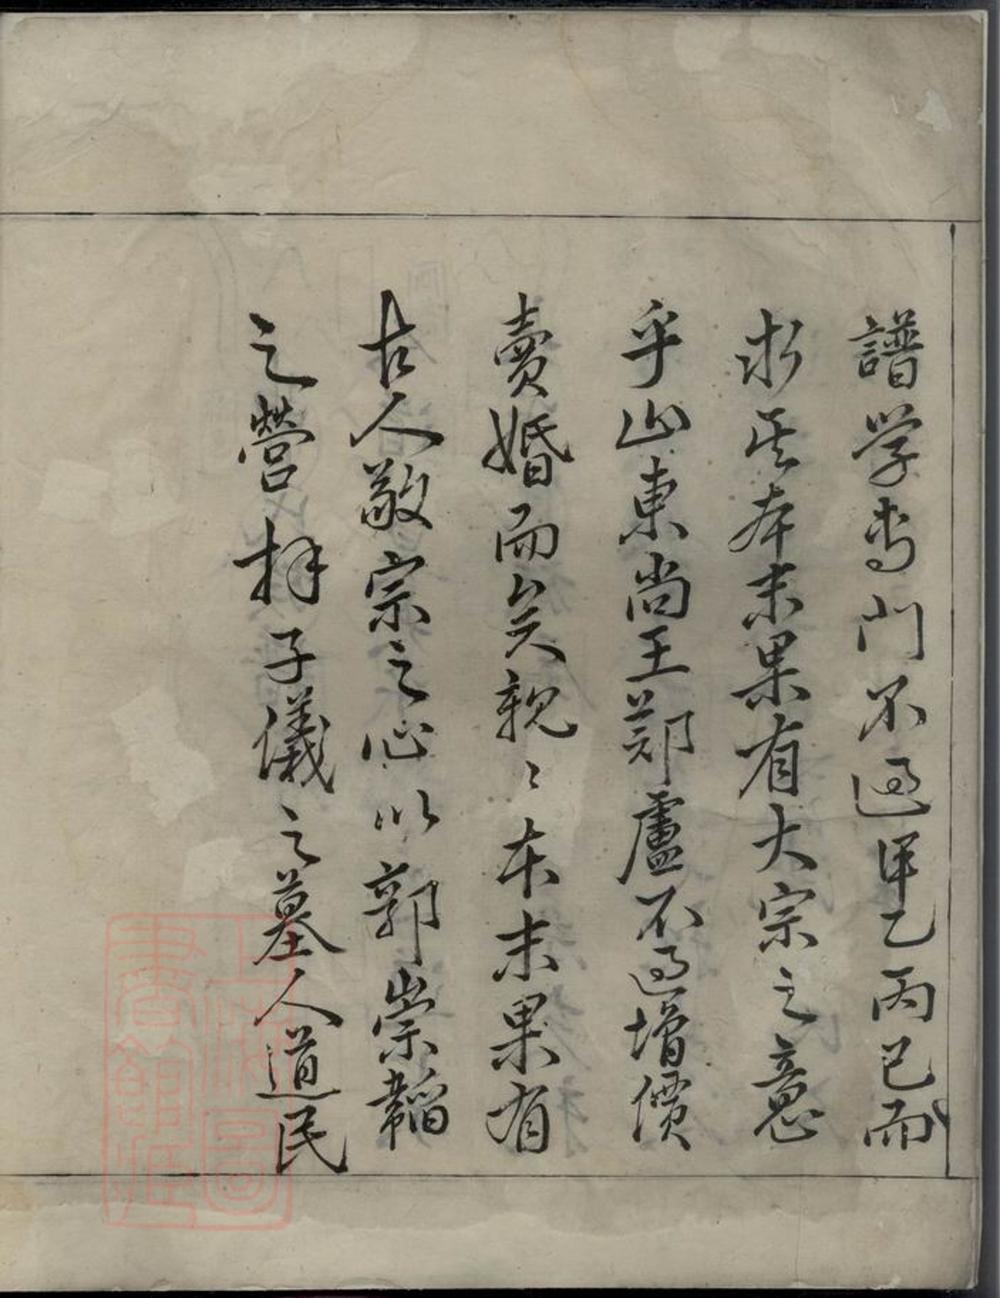 譜学専门不過甲乙丙已而
求其本末果有大宗之意
乎山東尚王鄭盧不過增價
賣婚而矣親〻本末果有
古人敬宗之心以郭崇韜
之營拜子儀之墓人道民
上海圖
書館藏